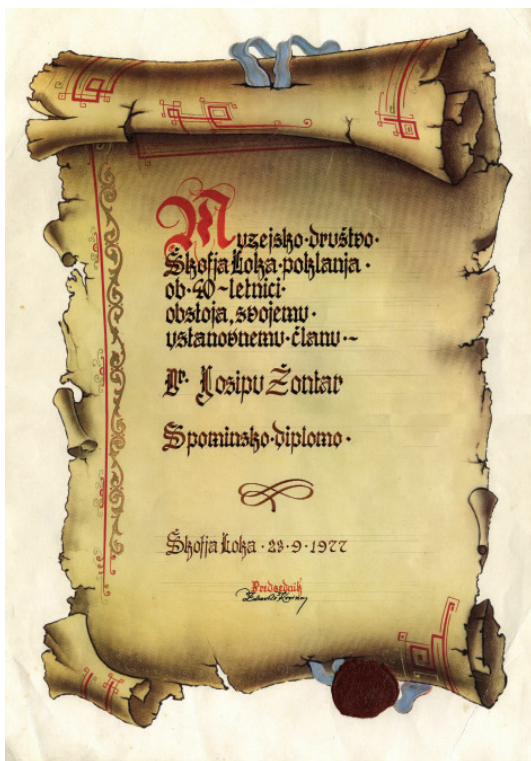 Muzejsko·društvo·
Škofja Loka·poklanja·
ob·40-letnici·
obstoja, svojemu·
ustanovnemu·članu·~
Dr. Josipu Žontar
Spominsko·diplomo·
Škofja Loka·23·9·1977
Predsednik